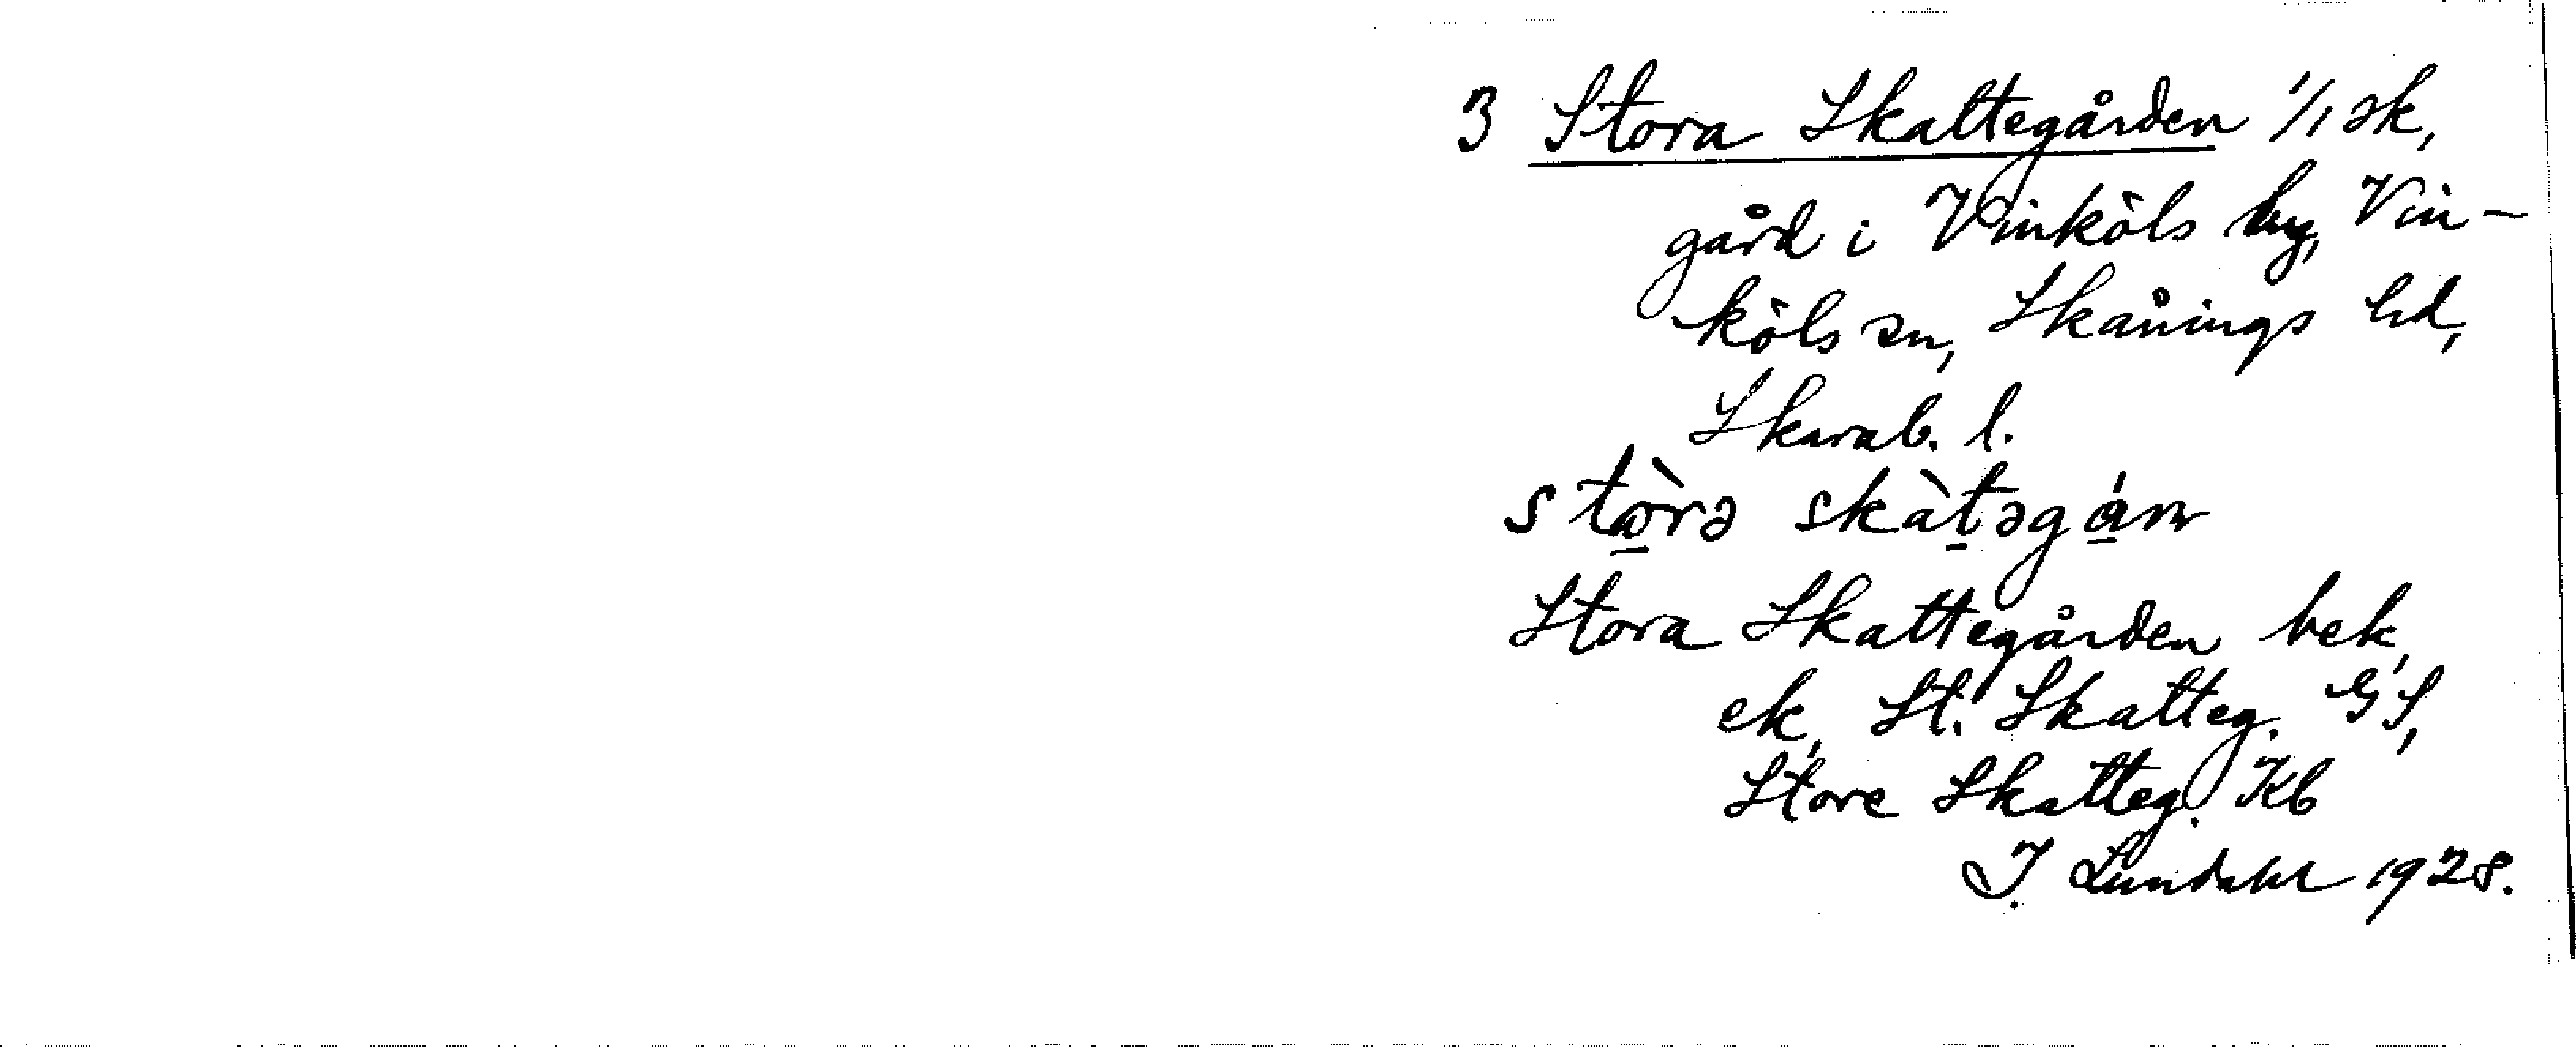 3 Stora Skattegården 1/1 sk,
gård i Vinköls by, Vin-
köls sn, Skånings hd,
Skarab. l.
stòrə skàtəgán
Stora Skattegården bek,
ek, St. Skatteg. GS,
Store Skatteg. Kb
I. Lundahl 1928.